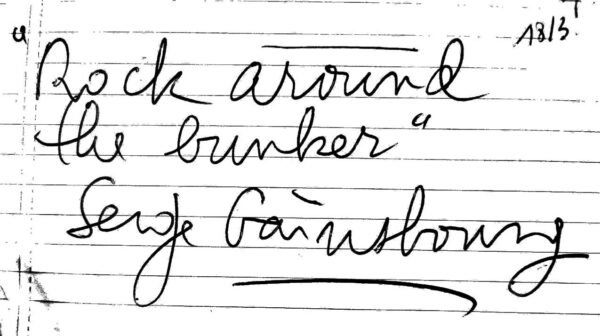 18/3
"Rock around
the bunker"
Serge Gainsbourg